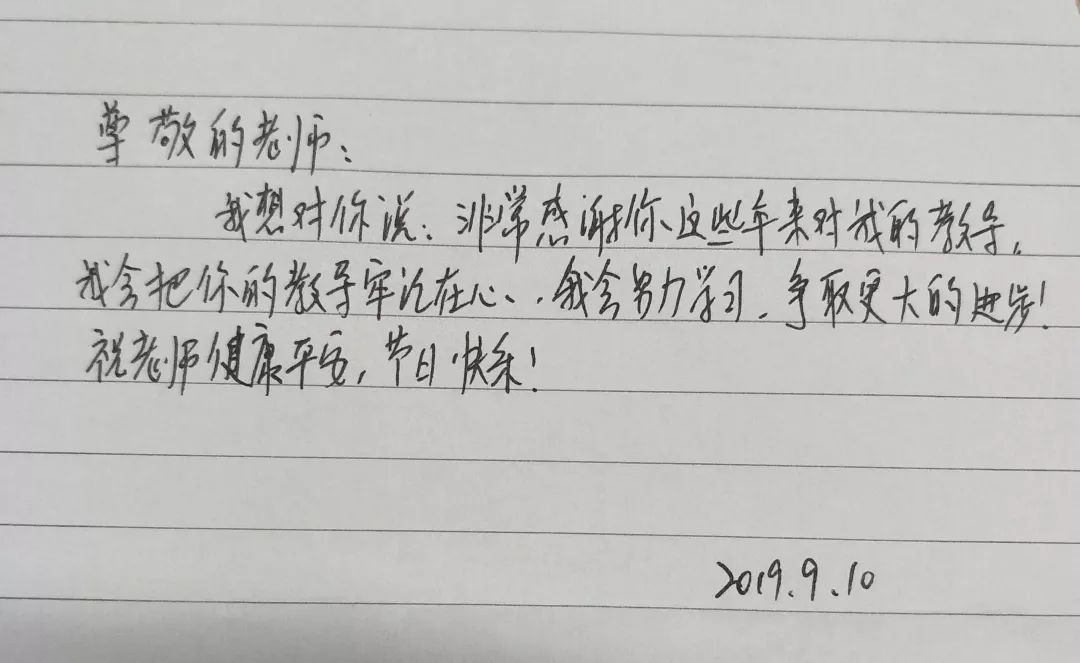 尊敬的老师：
我想对你说：非常感谢你这些年来对我的教导，
我会把你的教导牢记在心，我会努力学习，争取更大的进步！
祝老师健康平安，节日快乐！
2019.9.10